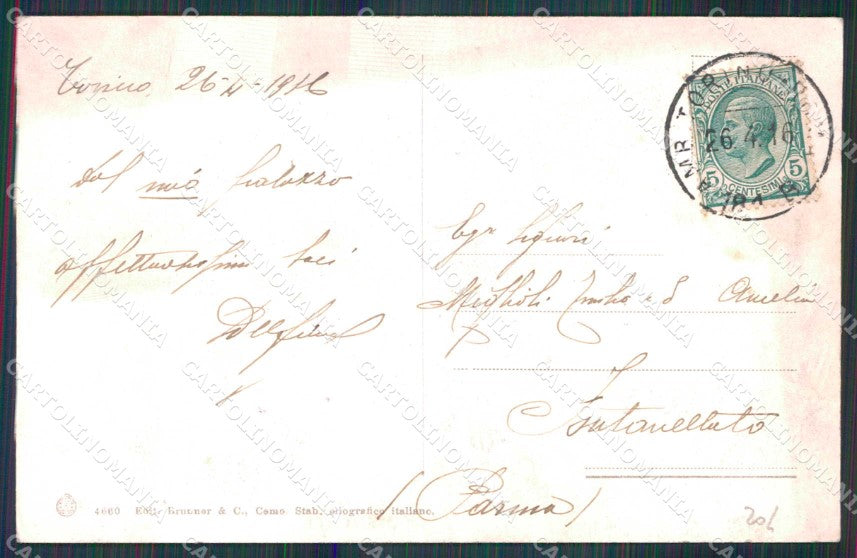 Torino, 26-4-1916
Dal mio palazzo
affettuosissimi baci
Delfina
Egr Signori
Miglioli Emilio e S
Fontanellato
(Parma)
POSTE ITALIANE
5 CENTESIMI 5
AMB. TORINO
26.4.16
4660 Edit. Brunner & C., Como Stab. eliografico italiano.
CARTOLINOMANIA